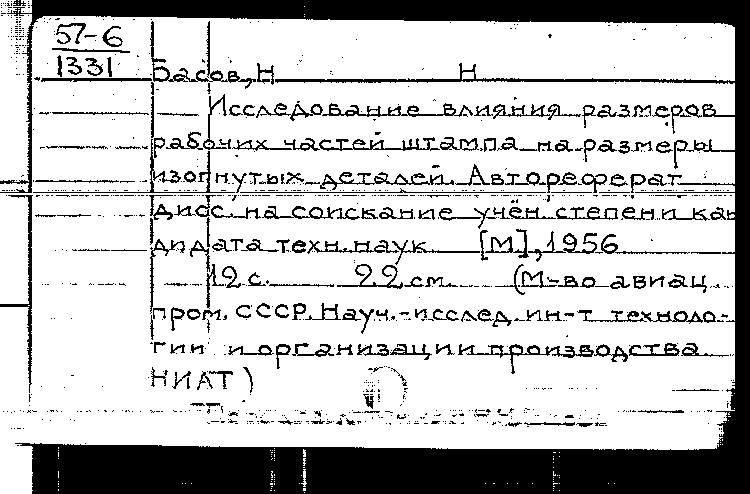 57-6
1331
Басов, Н Н
Исследование влияния размеров
рабочих частей штампа на размеры
изогнутых деталей. Автореферат
дисс. на соискание учён. степени кан
дидата техн. наук [М], 1956
12 с. 22 см. (М-во авиац.
пром. СССР. Науч.-исслед. ин-т техноло-
гии и организации производства
НИАТ)